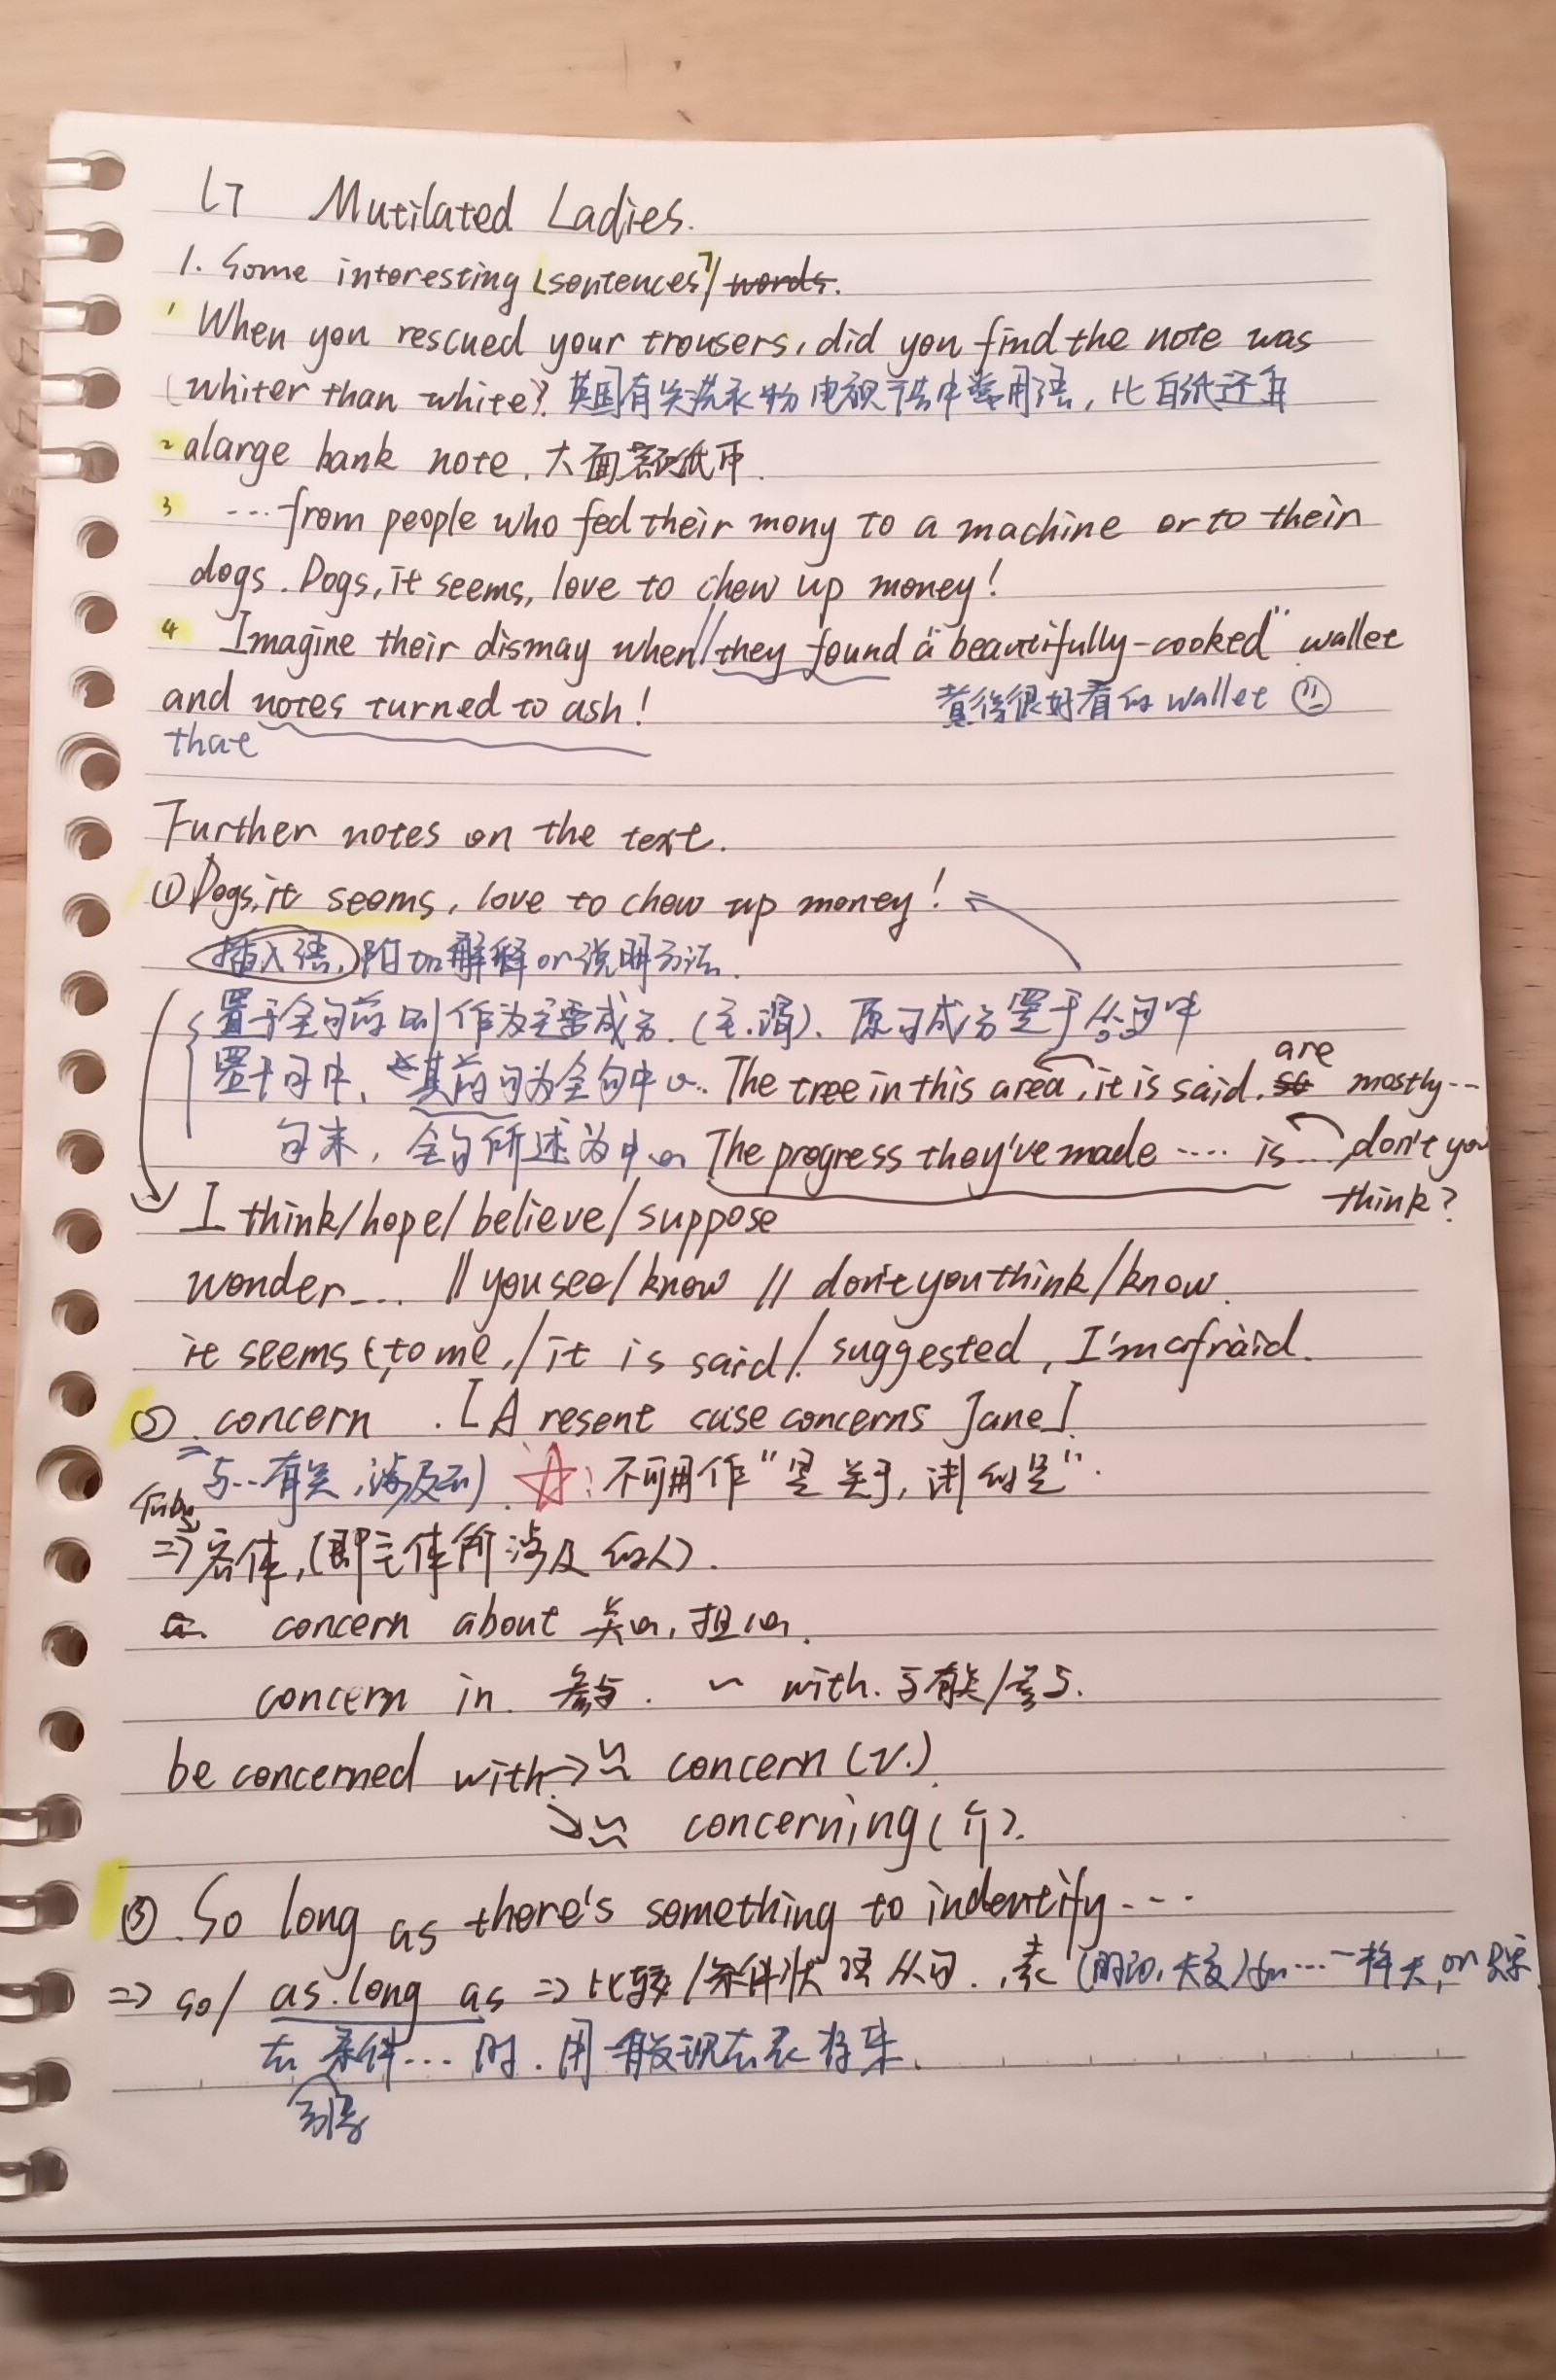 L7 Mutilated Ladies.
1. Some interesting 「sentences」/ words.
1 When you rescued your trousers, did you find the note was
whiter than white? 英国有关洗衣粉电视广告中常用语, 比白纸还白
2 alarge bank note. 大面额纸币.
3 ...from people who fed their mony to a machine or to their
dogs. Dogs, it seems, love to chew up money!
4 Imagine their dismay when // they found a "beautifully-cooked" wallet
and notes turned to ash! 煮得很好看的 wallet
that
Further notes on the text.
① Dogs, it seems, love to chew up money!
插入语, 附加解释 or 说明方法.
置于全句前则作为主要成分. (主.谓). 原句成分置于从句中
置于句中, 其前句为全句中心. The tree in this area, it is said, so are mostly...
句末, 全句所述为中心 The progress they've made .... is ..., don't you
think?
I think/hope/believe/suppose
wonder... // you see/know // don't you think/know.
it seems (to me) / it is said / suggested, I'm afraid.
② concern . [A resent case concerns Jane]
与..有关, 涉及到) ☆: 不可用作"是关于, 讲的是".
⇒ 客体, (即主体所涉及的人).
concern about 关心, 担心.
concern in. 参与. ~ with. 与有关/参与.
be concerned with → ≈ concern (v.)
↘ ≈ concerning (介).
③ So long as there's something to indentify...
⇒ so/ as long as ⇒ 比较/条件状语从句. 表 (时间, 长度) 如...一样长, or
在 条件... 时. 用一般现在表将来.